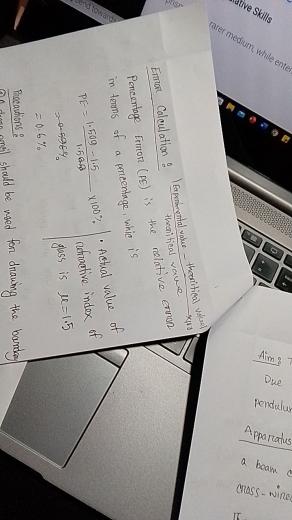 rarer medium, while ente
Error Calculation:
Experimental value - theoritical value
theoritical value
Percentage Error (PE) is the relative error
in terms of a percentage, while is
PE = 1.509 - 1.5 x100%
= 0.6%
• Actual value of
refractive index of
glass is μ=1.5
Precautions:
should be used for drawing the
Aim:
Due
pendulu
Apparatus
a beam
cross-wire